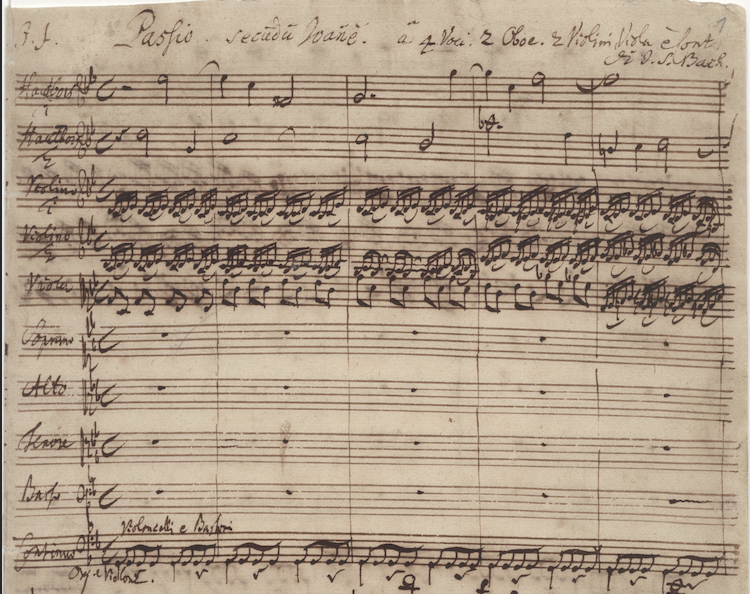 J. J. Passio secūdū Joāñē. à 4 Voci. 2 Oboe. 2 Violini, Viola è Cont.
di J. S. Bach.
Hautbois
1
Hautbois
2
Violino
1
Violino
2
Viola
Soprano
Alto
Tenore
Basso
Violoncelli e Bassoni
Continuo
Org. e Violon.